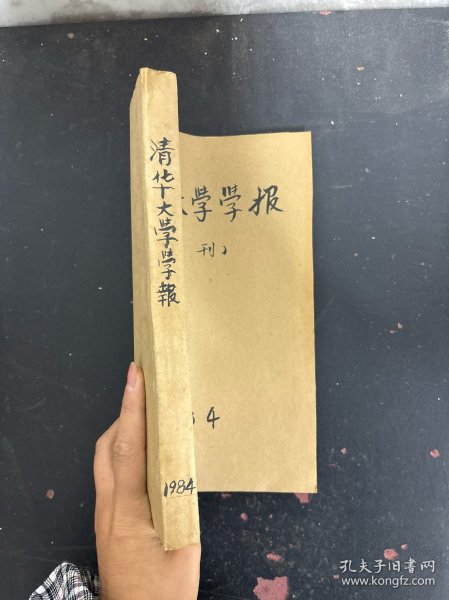 清华大学学報
1984
大學學报
刊）
84
孔夫子旧书网
www.kongfz.com